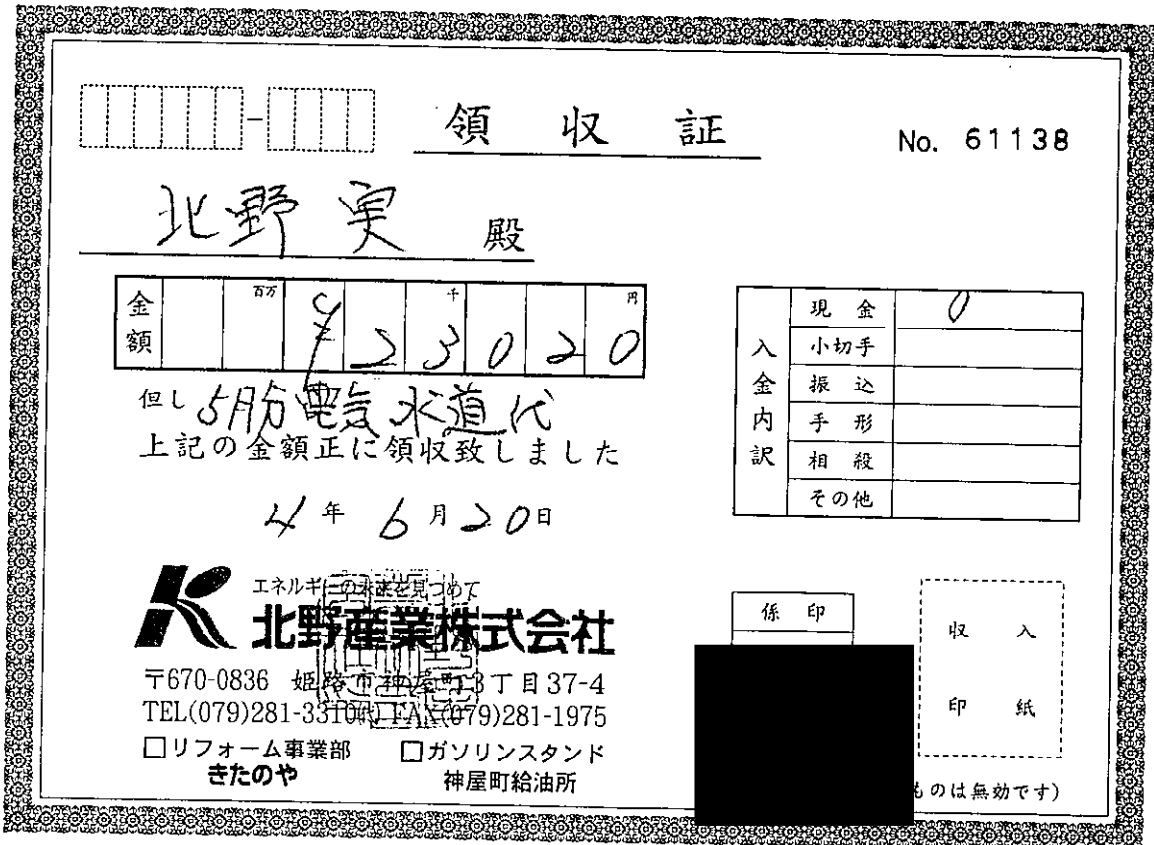 領収証
No. 61138
北野実 殿
金額 百万 千 円
¥23020
但し 5月分電気水道代
上記の金額正に領収致しました
4年6月20日
入金内訳
現金 0
小切手
振込
手形
相殺
その他
エネルギーの未来を見つめて
北野産業株式会社
〒670-0836 姫路市神屋町3丁目37-4
TEL(079)281-3310㈹ FAX(079)281-1975
□リフォーム事業部 □ガソリンスタンド
きたのや 神屋町給油所
係印
収入
印紙
ものは無効です)